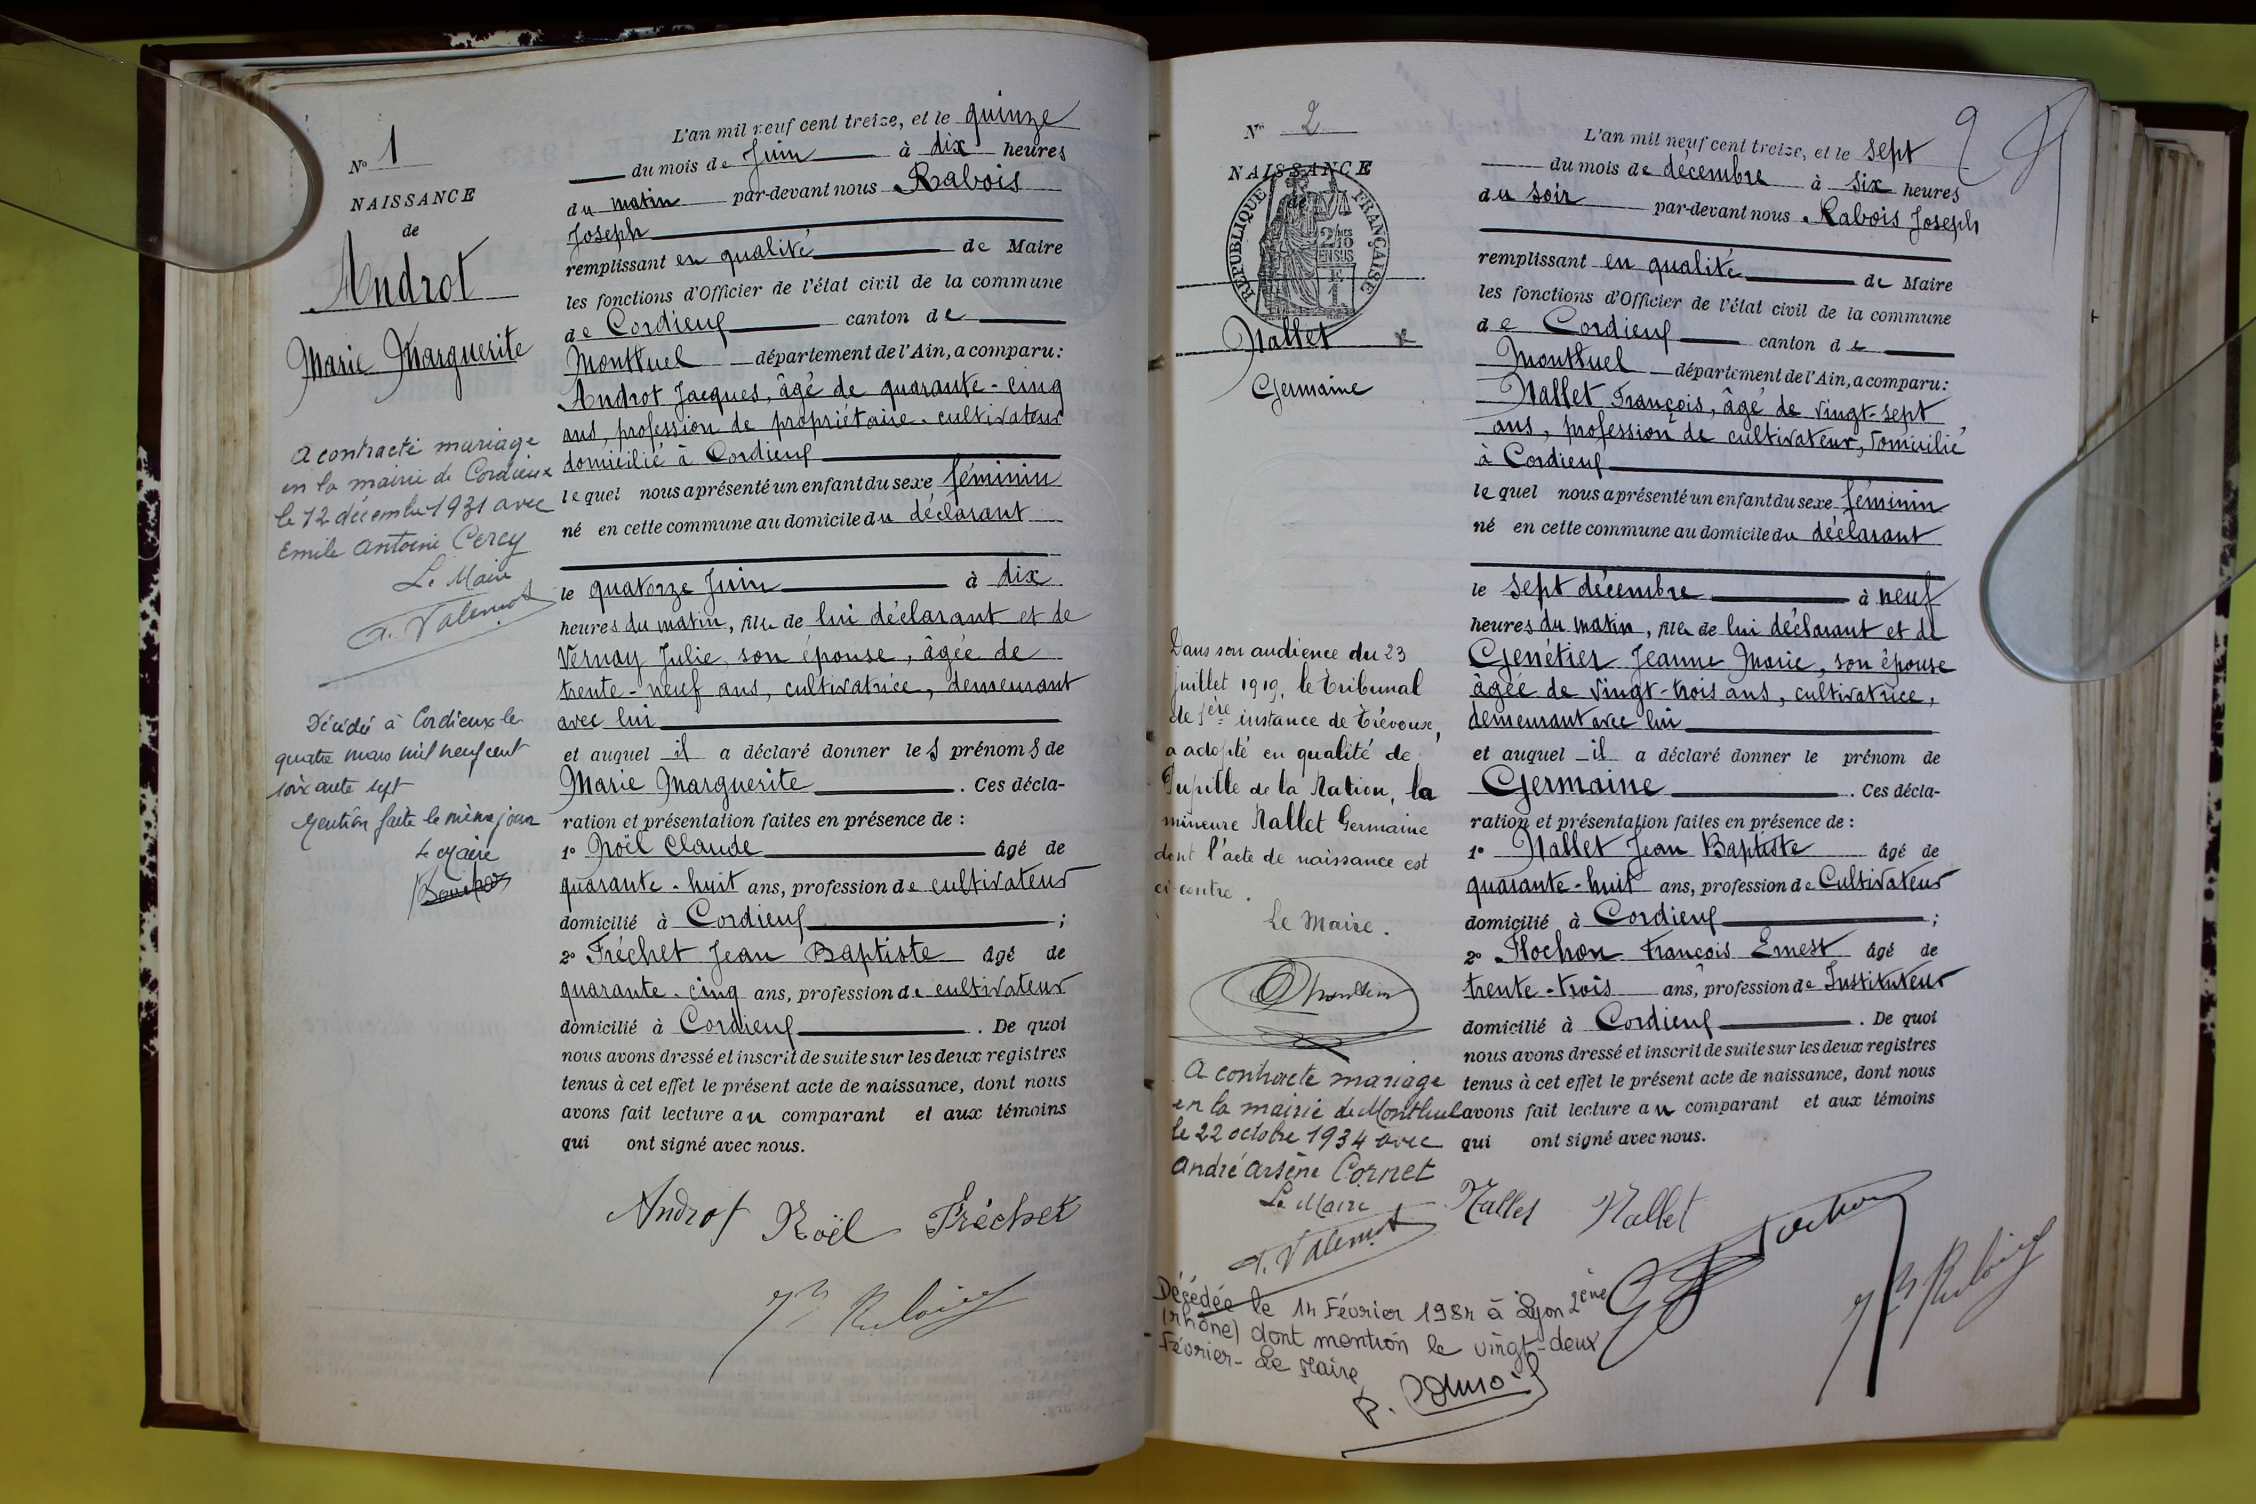 N° 1
NAISSANCE
de
Androt
Marie Marguerite
a contracté mariage
en la mairie de Cordieux
le 12 décembre 1931 avec
Emile Antoine Percy
Le Maire
Décédée à Cordieux le
quatre mars mil neuf cent
soixante sept
Mention faite le même jour
Le Maire
L'an mil neuf cent treize, et le quinze
du mois de Juin à dix heures
du matin par-devant nous Rabois
Joseph
remplissant en qualité de Maire
les fonctions d'Officier de l'état civil de la commune
de Cordieux canton de
Montluel département de l'Ain, a comparu:
Androt Jacques, âgé de quarante-cinq
ans, profession de propriétaire-cultivateur
domicilié à Cordieux
lequel nous a présenté un enfant du sexe féminin
né en cette commune au domicile du déclarant
le quatorze Juin à dix
heures du matin, fille de lui déclarant et de
Vernay Julie, son épouse, âgée de
trente-neuf ans, cultivatrice, demeurant
avec lui
et auquel il a déclaré donner les prénoms de
Marie Marguerite. Ces décla-
ration et présentation faites en présence de :
1° Noël Claude âgé de
quarante-huit ans, profession de cultivateur
domicilié à Cordieux ;
2° Fréchet Jean Baptiste âgé de
quarante-cinq ans, profession de cultivateur
domicilié à Cordieux. De quoi
nous avons dressé et inscrit de suite sur les deux registres
tenus à cet effet le présent acte de naissance, dont nous
avons fait lecture au comparant et aux témoins
qui ont signé avec nous.
Androt Noël Fréchet
Rabois
N° 2
NAISSANCE
de
REPUBLIQUE FRANÇAISE
Nallet
Germaine
Dans son audience du 23
juillet 1919, le Tribunal
de 1ère instance de Trévoux,
a adopté en qualité de
Pupille de la Nation, la
mineure Nallet Germaine
dont l'acte de naissance est
ci-contre.
Le Maire.
A contracté mariage
en la mairie de Montluel
le 22 octobre 1934 avec
André Arsène Cornet
Le Maire
Décédée le 14 Février 1984 à Lyon 2ème
(rhône) dont mention le vingt-deux
Février - Le Maire,
2
L'an mil neuf cent treize, et le sept
du mois de décembre à six heures
du soir par-devant nous Rabois Joseph
remplissant en qualité de Maire
les fonctions d'Officier de l'état civil de la commune
de Cordieux canton de
Montluel département de l'Ain, a comparu:
Nallet François, âgé de vingt-sept
ans, profession de cultivateur, domicilié
à Cordieux
lequel nous a présenté un enfant du sexe féminin
né en cette commune au domicile du déclarant
le sept décembre à neuf
heures du matin, fille de lui déclarant et de
Genétier Jeanne Marie, son épouse
âgée de vingt-trois ans, cultivatrice,
demeurant avec lui
et auquel il a déclaré donner le prénom de
Germaine. Ces décla-
ration et présentation faites en présence de :
1° Nallet Jean Baptiste âgé de
quarante-huit ans, profession de Cultivateur
domicilié à Cordieux ;
2° Flochon François Ernest âgé de
trente-trois ans, profession de Instituteur
domicilié à Cordieux. De quoi
nous avons dressé et inscrit de suite sur les deux registres
tenus à cet effet le présent acte de naissance, dont nous
avons fait lecture au comparant et aux témoins
qui ont signé avec nous.
Nallet Nallet
Rabois